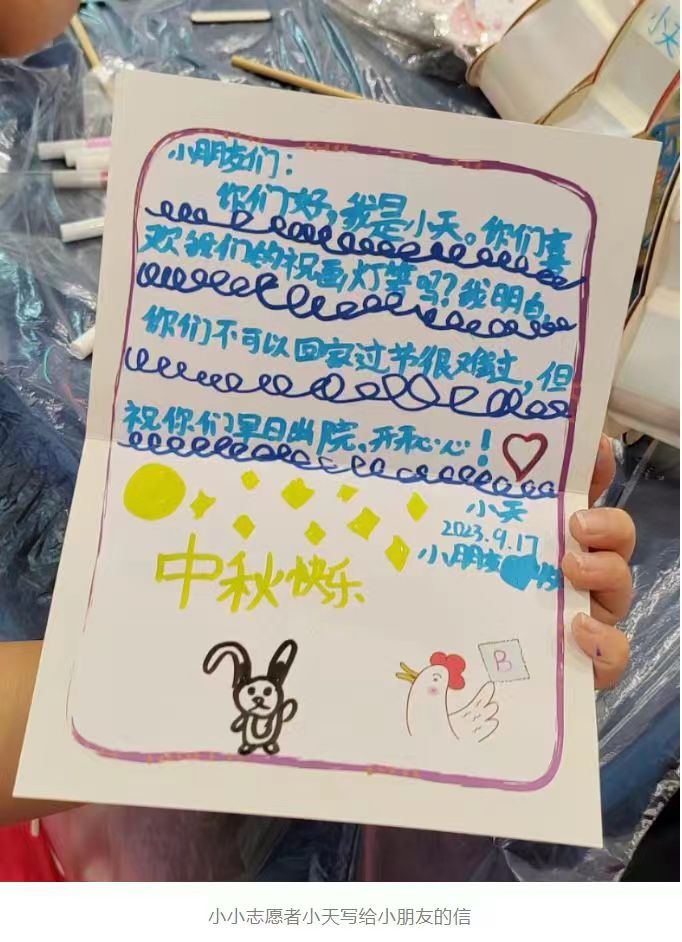 小天
小朋友们：
你们好，我是小天。你们喜
欢我们的祝画灯笼吗？我明白，
你们不可以回家过节很难过，但
祝你们早日出院、开心心！
小天
2023.9.17
小朋友
中秋快乐
B
小小志愿者小天写给小朋友的信